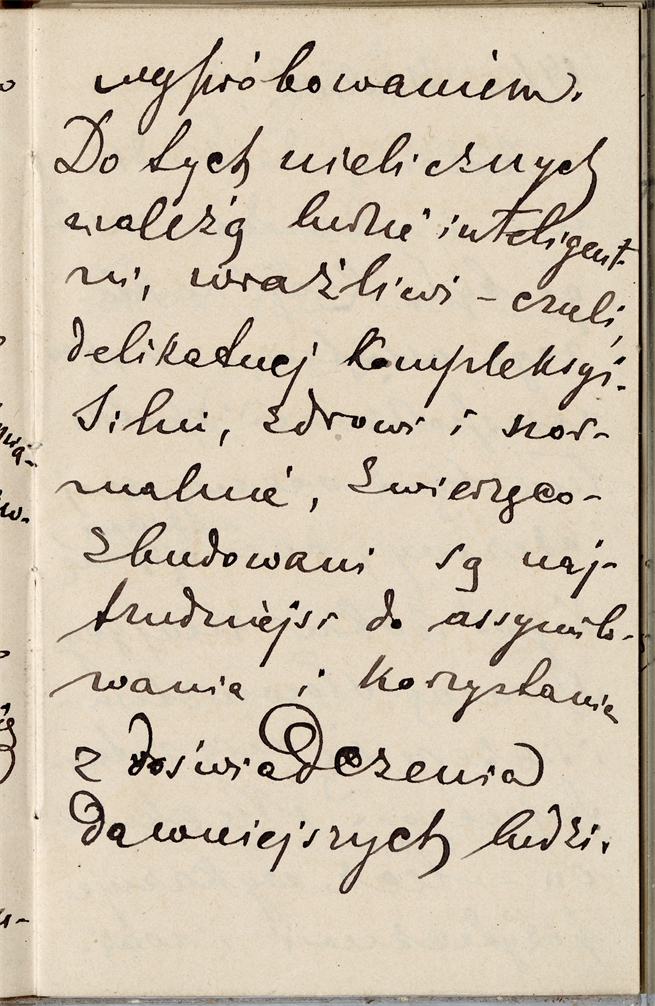 wypróbowaniem.
Do tych nielicznych
należą ludzie inteligent-
ni, wrażliwi – czuli,
delikatnej kompleksyi.
Silni, zdrowi i nor-
malnie, zwierzęco-
zbudowani są naj-
trudniejsi do assymilo-
wania i korzystania
z doświadczenia
dawniejszych ludzi.